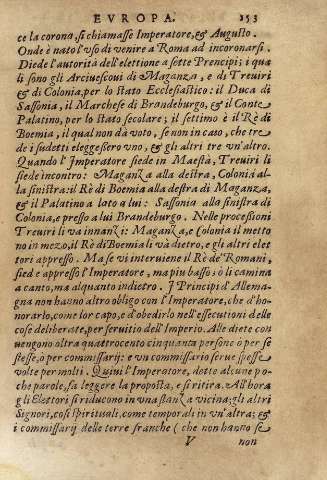 EVROPA. 153
ce la corona, si chiamasse Imperatore, & Augusto.
Onde è nato l'uso di venire a Roma ad incoronarsi.
Diede l'autorità dell'elettione a sette Prencipi; i qua
li sono gli Arciuescoui di Maganza, e di Treuiri
& di Colonia, per lo stato Ecclesiastico: il Duca di
Sassonia, il Marchese di Brandeburgo, & il Conte
Palatino, per lo stato secolare; il settimo è il Rè di
Boemia, il qual non dà voto, se non in caso, che tre
de i sudetti eleggessero vno, & gli altri tre vn'altro.
Quando l'Imperatore siede in Maestà, Treuiri li
siede incontro: Maganza alla destra, Colonia al-
la sinistra: il Rè di Boemia alla destra di Maganza,
& il Palatino a lato a lui: Sassonia alla sinistra di
Colonia, e presso a lui Brandeburgo. Nelle processioni
Treuiri li va innanzi: Maganza, e Colonia il metto
no in mezo, il Rè di Boemia li và dietro, e gli altri elet
tori appresso. Ma se vi interuiene il Rè de' Romani,
sied e appresso l'Imperatore, ma piu basso; ò li camina
a canto, ma alquanto indietro. I Prencipi d'Allema-
gna non hanno altro obligo con l'Imperatore, che d'ho-
norarlo, come lor capo, e d'obedirlo nell'essecutioni delle
cose deliberate, per seruitio dell'Imperio. Alle diete con
uengono oltra quattrocento cinquanta persone ò per se
stesse, ò per commissarij: e vn commissario serue spesse
volte per molti. Quiui l'Imperatore, dette alcune po-
che parole, fa leggere la proposta, e si ritira. All'hora
gli Elettori si riducono in vna stanza vicina; gli altri
Signori, così spirituali, come temporali in vn'altra; &
i commissarij delle terre franche (che non hanno se
V non